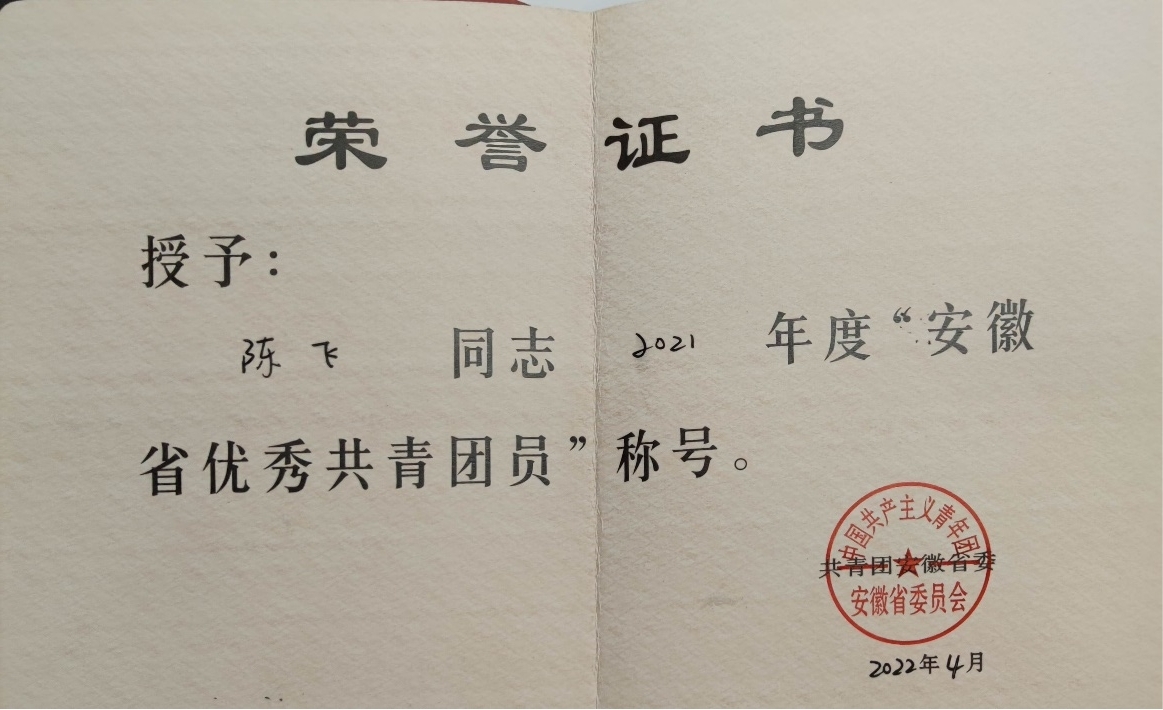 荣誉证书
授予：
陈飞 同志 2021 年度“安徽
省优秀共青团员”称号。
中国共产主义青年团
共青团安徽省委
安徽省委员会
2022年4月